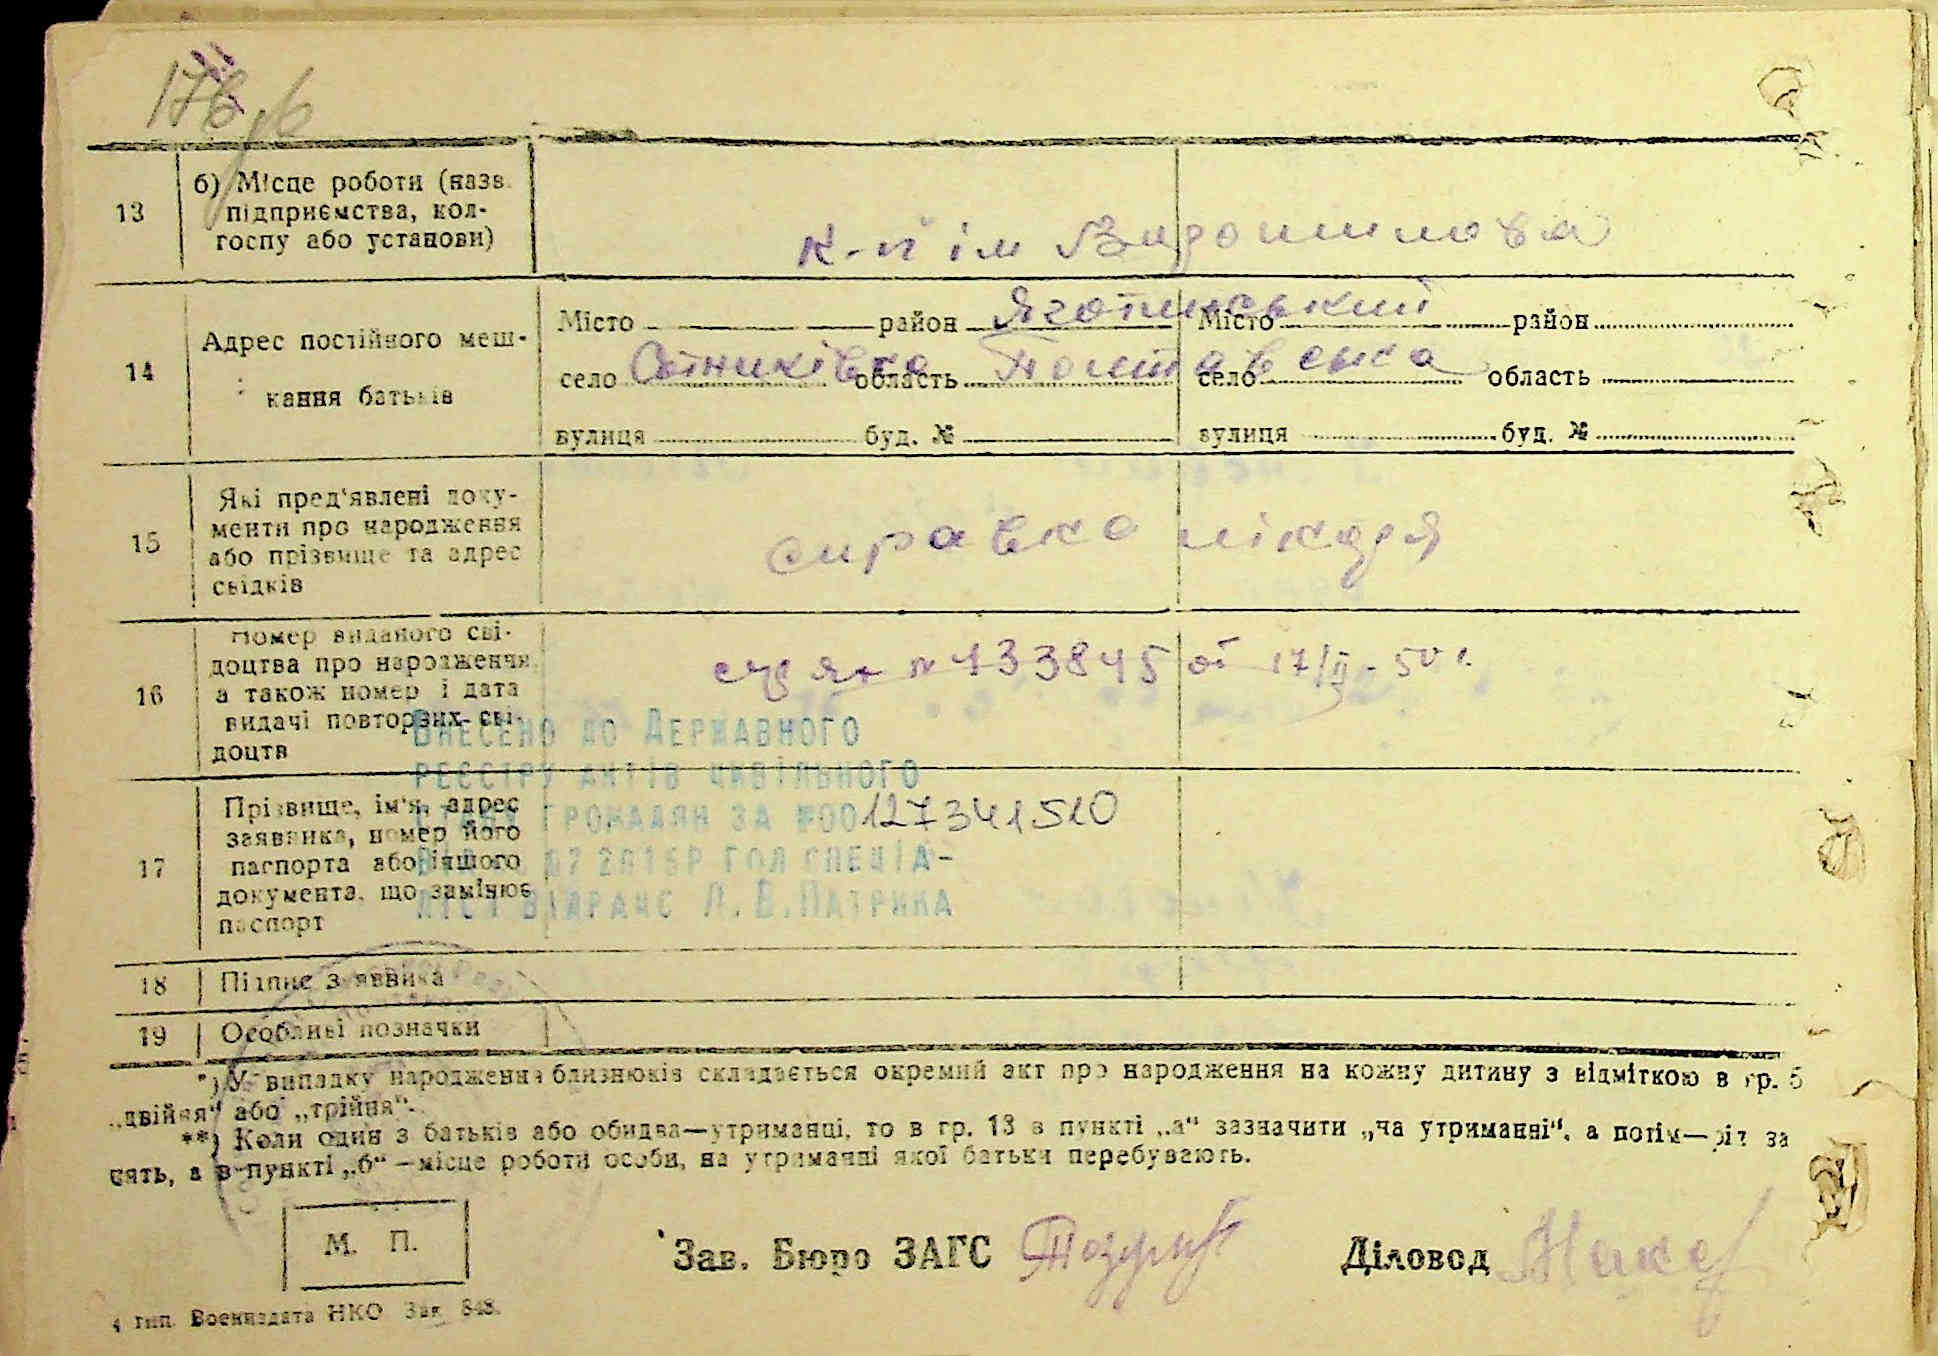 178
13
б) Місце роботи (назв.
підприємства, кол-
госпу або установи)
к-п ім Ворошилова
14
Адрес постійного меш-
кання батьків
Місто район Яготинський Місто район
село Сотниківка область Полтавська село область
вулиця буд. № вулиця буд. №
15
Які пред'явлені доку-
менти про народження
або прізвище та адрес
свідків
справка лікаря
16
Номер виданого сві-
доцтва про народження
а також номер і дата
видачі повторних сві-
доцтв
№ 133845 от 17/II-50 г.
Внесено до Державного
реєстру актів цивільного
стану громадян за №00127341510
2016р гол спеціа-
ліст ВДРАЦС Л.В.Патрика
17
Прізвище, ім'я, адрес
заявника, номер його
паспорта або іншого
документа, що замінює
паспорт
18
Підпис заявника
19
Особливі позначки
*) У випадку народження близнюків складається окремий акт про народження на кожну дитину з відміткою в гр. 5
„двійня" або „трійня".
**) Коли один з батьків або обидва—утриманці, то в гр. 13 в пункті „а" зазначити „на утриманні", а потім—рід за
нять, а в пункті „б"—місце роботи особи, на утриманні якої батьки перебувають.
М. П.
Зав. Бюро ЗАГС
Діловод
4 тип. Воениздата НКО Зак. 848.